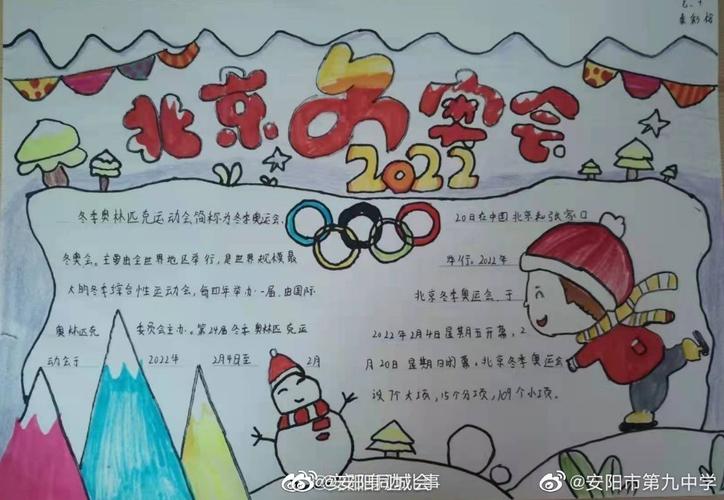 北京冬奥会
2022
冬季奥林匹克运动会简称为冬季奥运会、
冬奥会。主要由全世界地区举行,是世界规模最
大的冬季综合性运动会,每四年举办一届。由国际
奥林匹克 委员会主办。第24届冬季奥林匹克运
动会于 2022年 2月4日至 2月
20日在中国北京和张家口
举行。2022年
北京冬季奥运会于
2022年2月4日星期五开幕,2
月20日星期日闭幕。北京冬季奥运会
设7个大项,15个分项,109个小项。
@安阳市第九中学